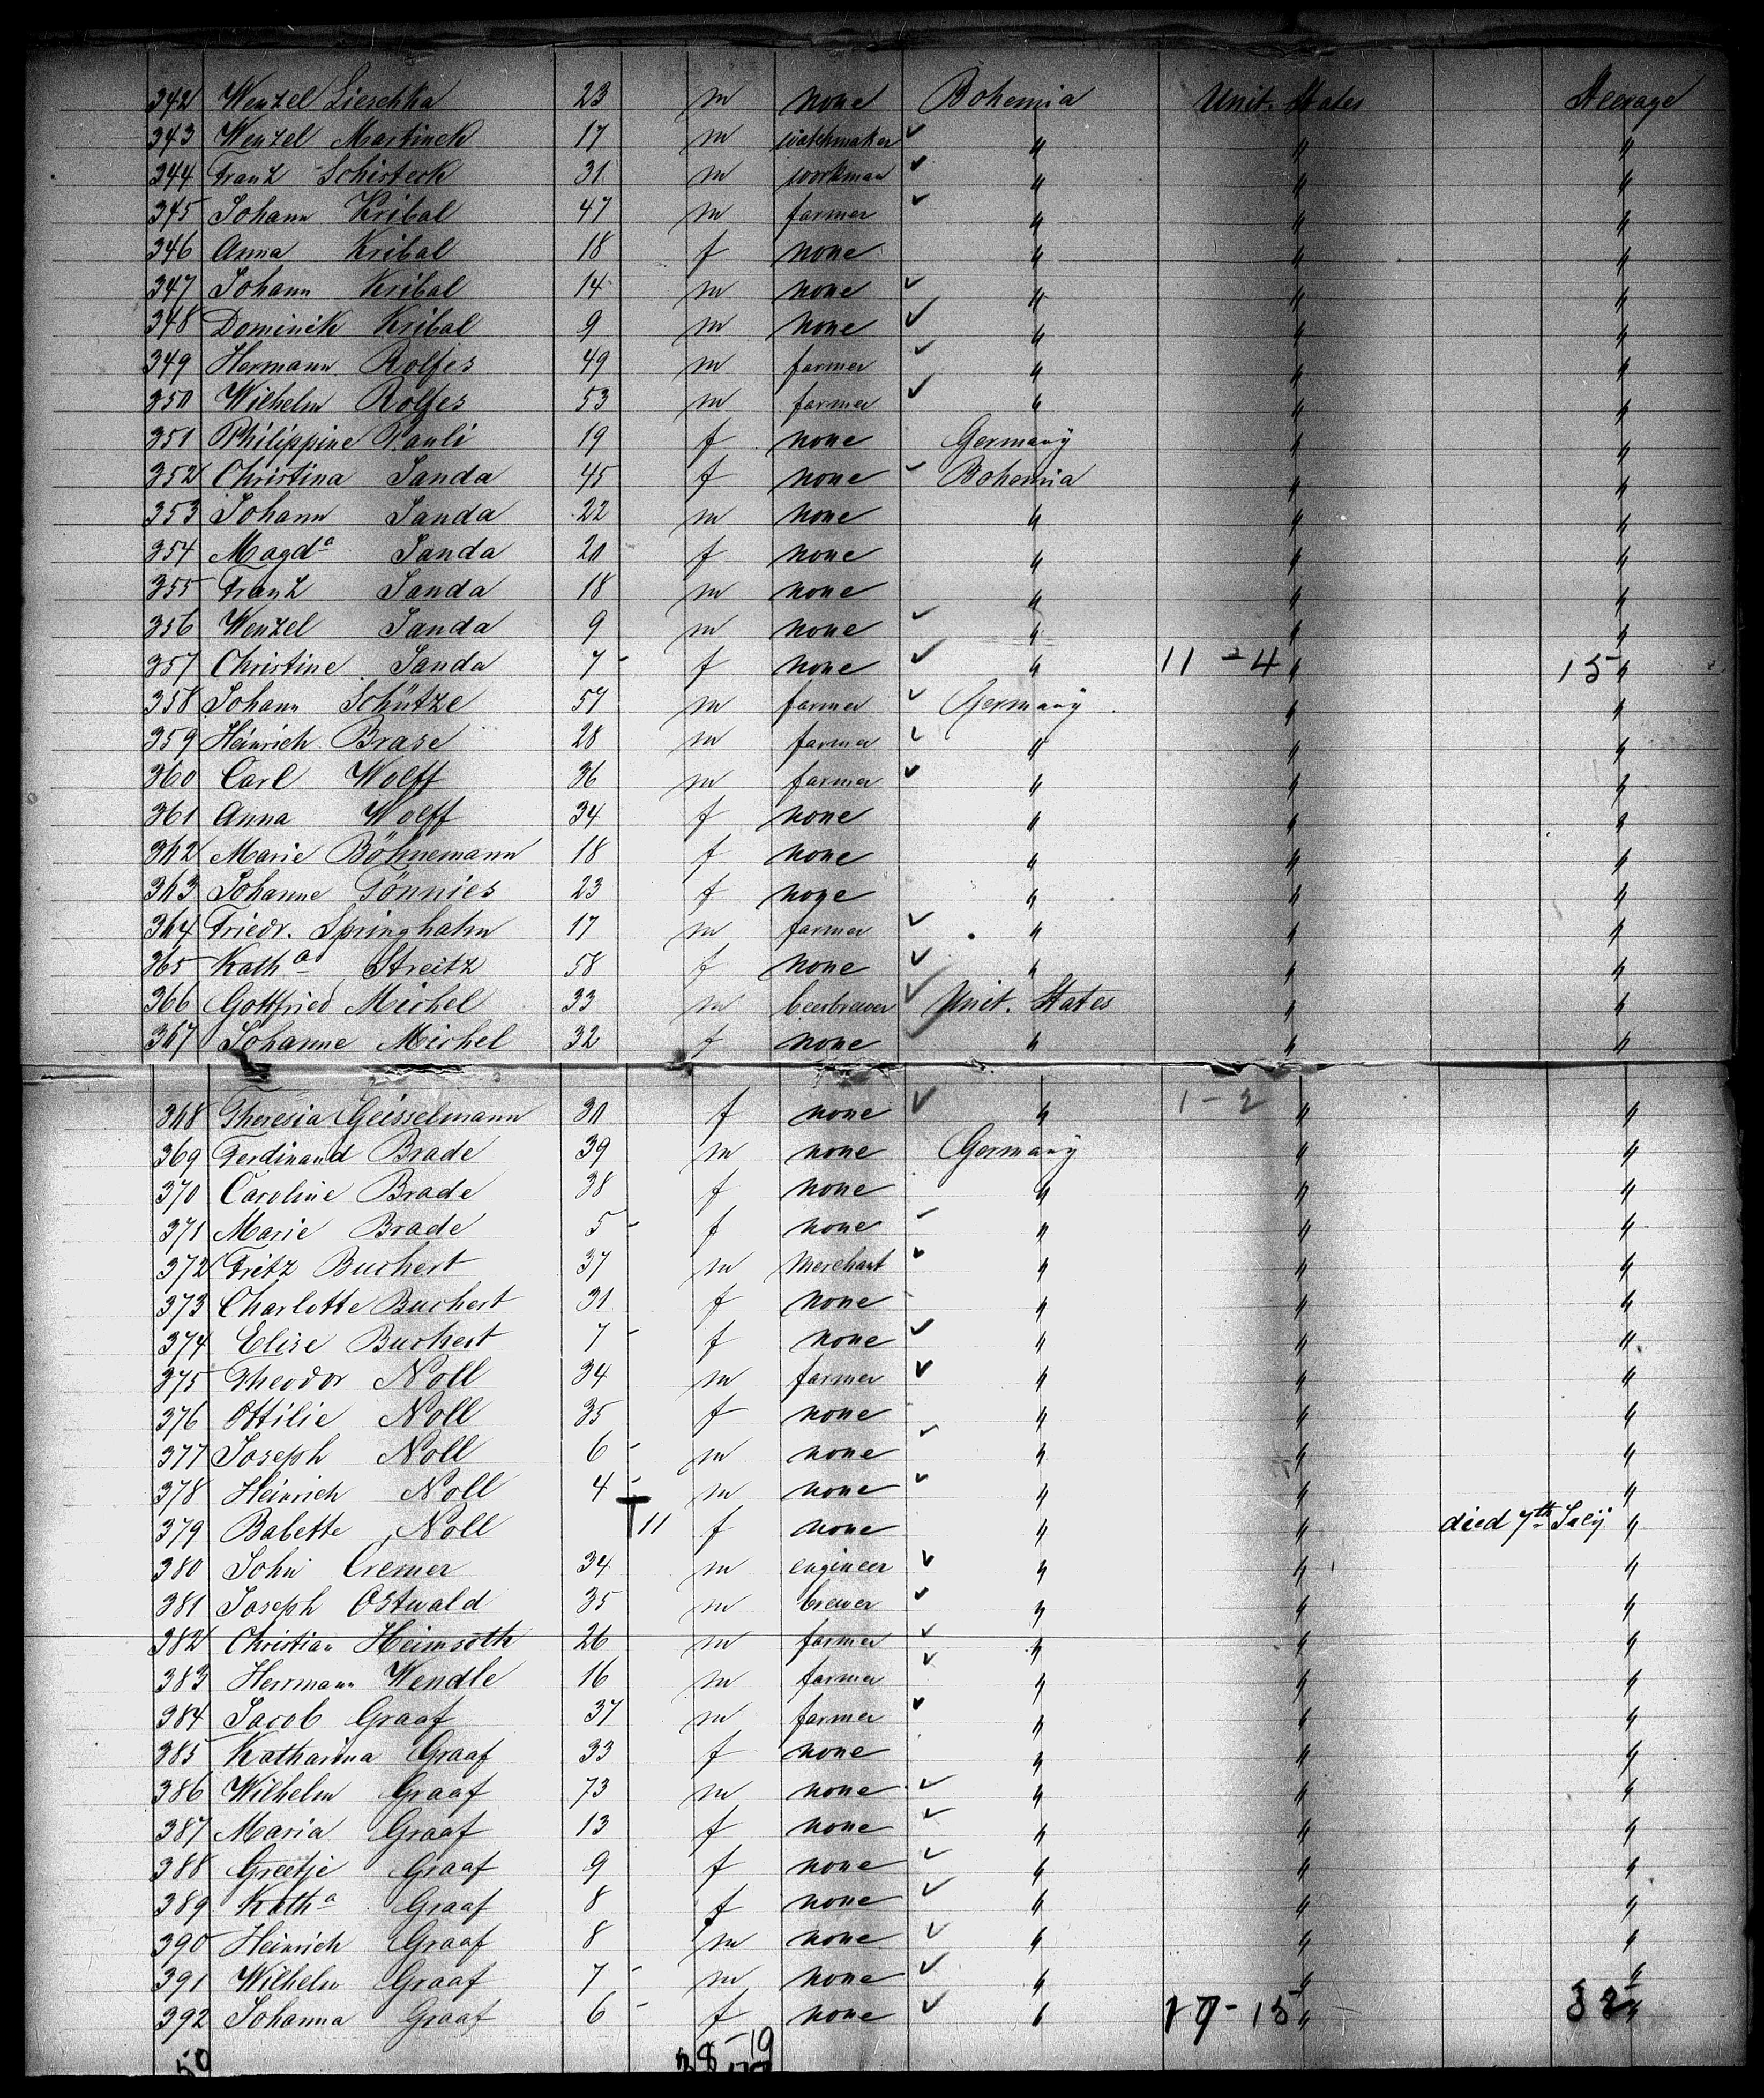 342 Wenzel Lieschka 23 m none Bohemia Unit. States Steerage
343 Wenzel Martinek 17 m watchmaker ✓ " " "
344 Franz Schisteck 31 m workman ✓ " " "
345 Johann Kribal 47 m farmer ✓ " " "
346 Anna Kribal 18 f none " " "
347 Johann Kribal 14 m none ✓ " " "
348 Dominik Kribal 9 m none ✓ " " "
349 Hermann Rolfes 49 m farmer ✓ " " "
350 Wilhelm Rolfes 53 m farmer ✓ " " "
351 Philippine Pauli 19 f none Germany " "
352 Christina Janda 45 f none ✓ Bohemia " "
353 Johann Janda 22 m none " " "
354 Magda Janda 20 f none " " "
355 Franz Janda 18 m none " " "
356 Wenzel Janda 9 m none ✓ " " "
357 Christine Janda 7 - f none ✓ " 11 - 4 " 15 "
358 Johann Schütze 57 m farmer ✓ Germany " "
359 Heinrich Brase 28 m farmer ✓ " " "
360 Carl Wolff 36 m farmer ✓ " " "
361 Anna Wolff 34 f none " " "
362 Marie Böhnemann 18 f none " " "
363 Johanne Tönnies 23 f none " " "
364 Friedr. Springhahn 17 m farmer ✓ " " "
365 Katha Streitz 58 f none ✓ " " "
366 Gottfried Michel 33 m beerbrewer ✓ Unit. States " "
367 Johanne Michel 32 f none ✓ " " "
368 Theresia Geisselmann 30 f none ✓ " 1 - 2 " "
369 Ferdinand Brade 39 m none Germany " "
370 Caroline Brade 38 f none " " "
371 Marie Brade 5 - f none ✓ " " "
372 Fritz Buchert 37 m merchant ✓ " " "
373 Charlotte Buchert 31 f none " " "
374 Elise Buchert 7 - f none ✓ " " "
375 Theodor Noll 34 m farmer ✓ " " "
376 Ottilie Noll 35 f none " " "
377 Joseph Noll 6 - m none ✓ " " "
378 Heinrich Noll 4 - m none ✓ " " "
379 Babette Noll 11 f none " " died 7th July "
380 John Cremer 34 m engineer ✓ " " "
381 Joseph Ostwald 35 m brewer ✓ " " "
382 Christian Heimsoth 26 m farmer ✓ " " "
383 Herrmann Wendle 16 m farmer ✓ " " "
384 Jacob Graaf 37 m farmer ✓ " " "
385 Katharina Graaf 33 f none " " "
386 Wilhelm Graaf 73 m none ✓ " " "
387 Maria Graaf 13 f none ✓ " " "
388 Greetje Graaf 9 f none ✓ " " "
389 Katha Graaf 8 f none ✓ " " "
390 Heinrich Graaf 8 m none ✓ " " "
391 Wilhelm Graaf 7 - m none ✓ " " "
392 Johanna Graaf 6 - f none ✓ " 17 - 15 " 32 "
50 38 - 19